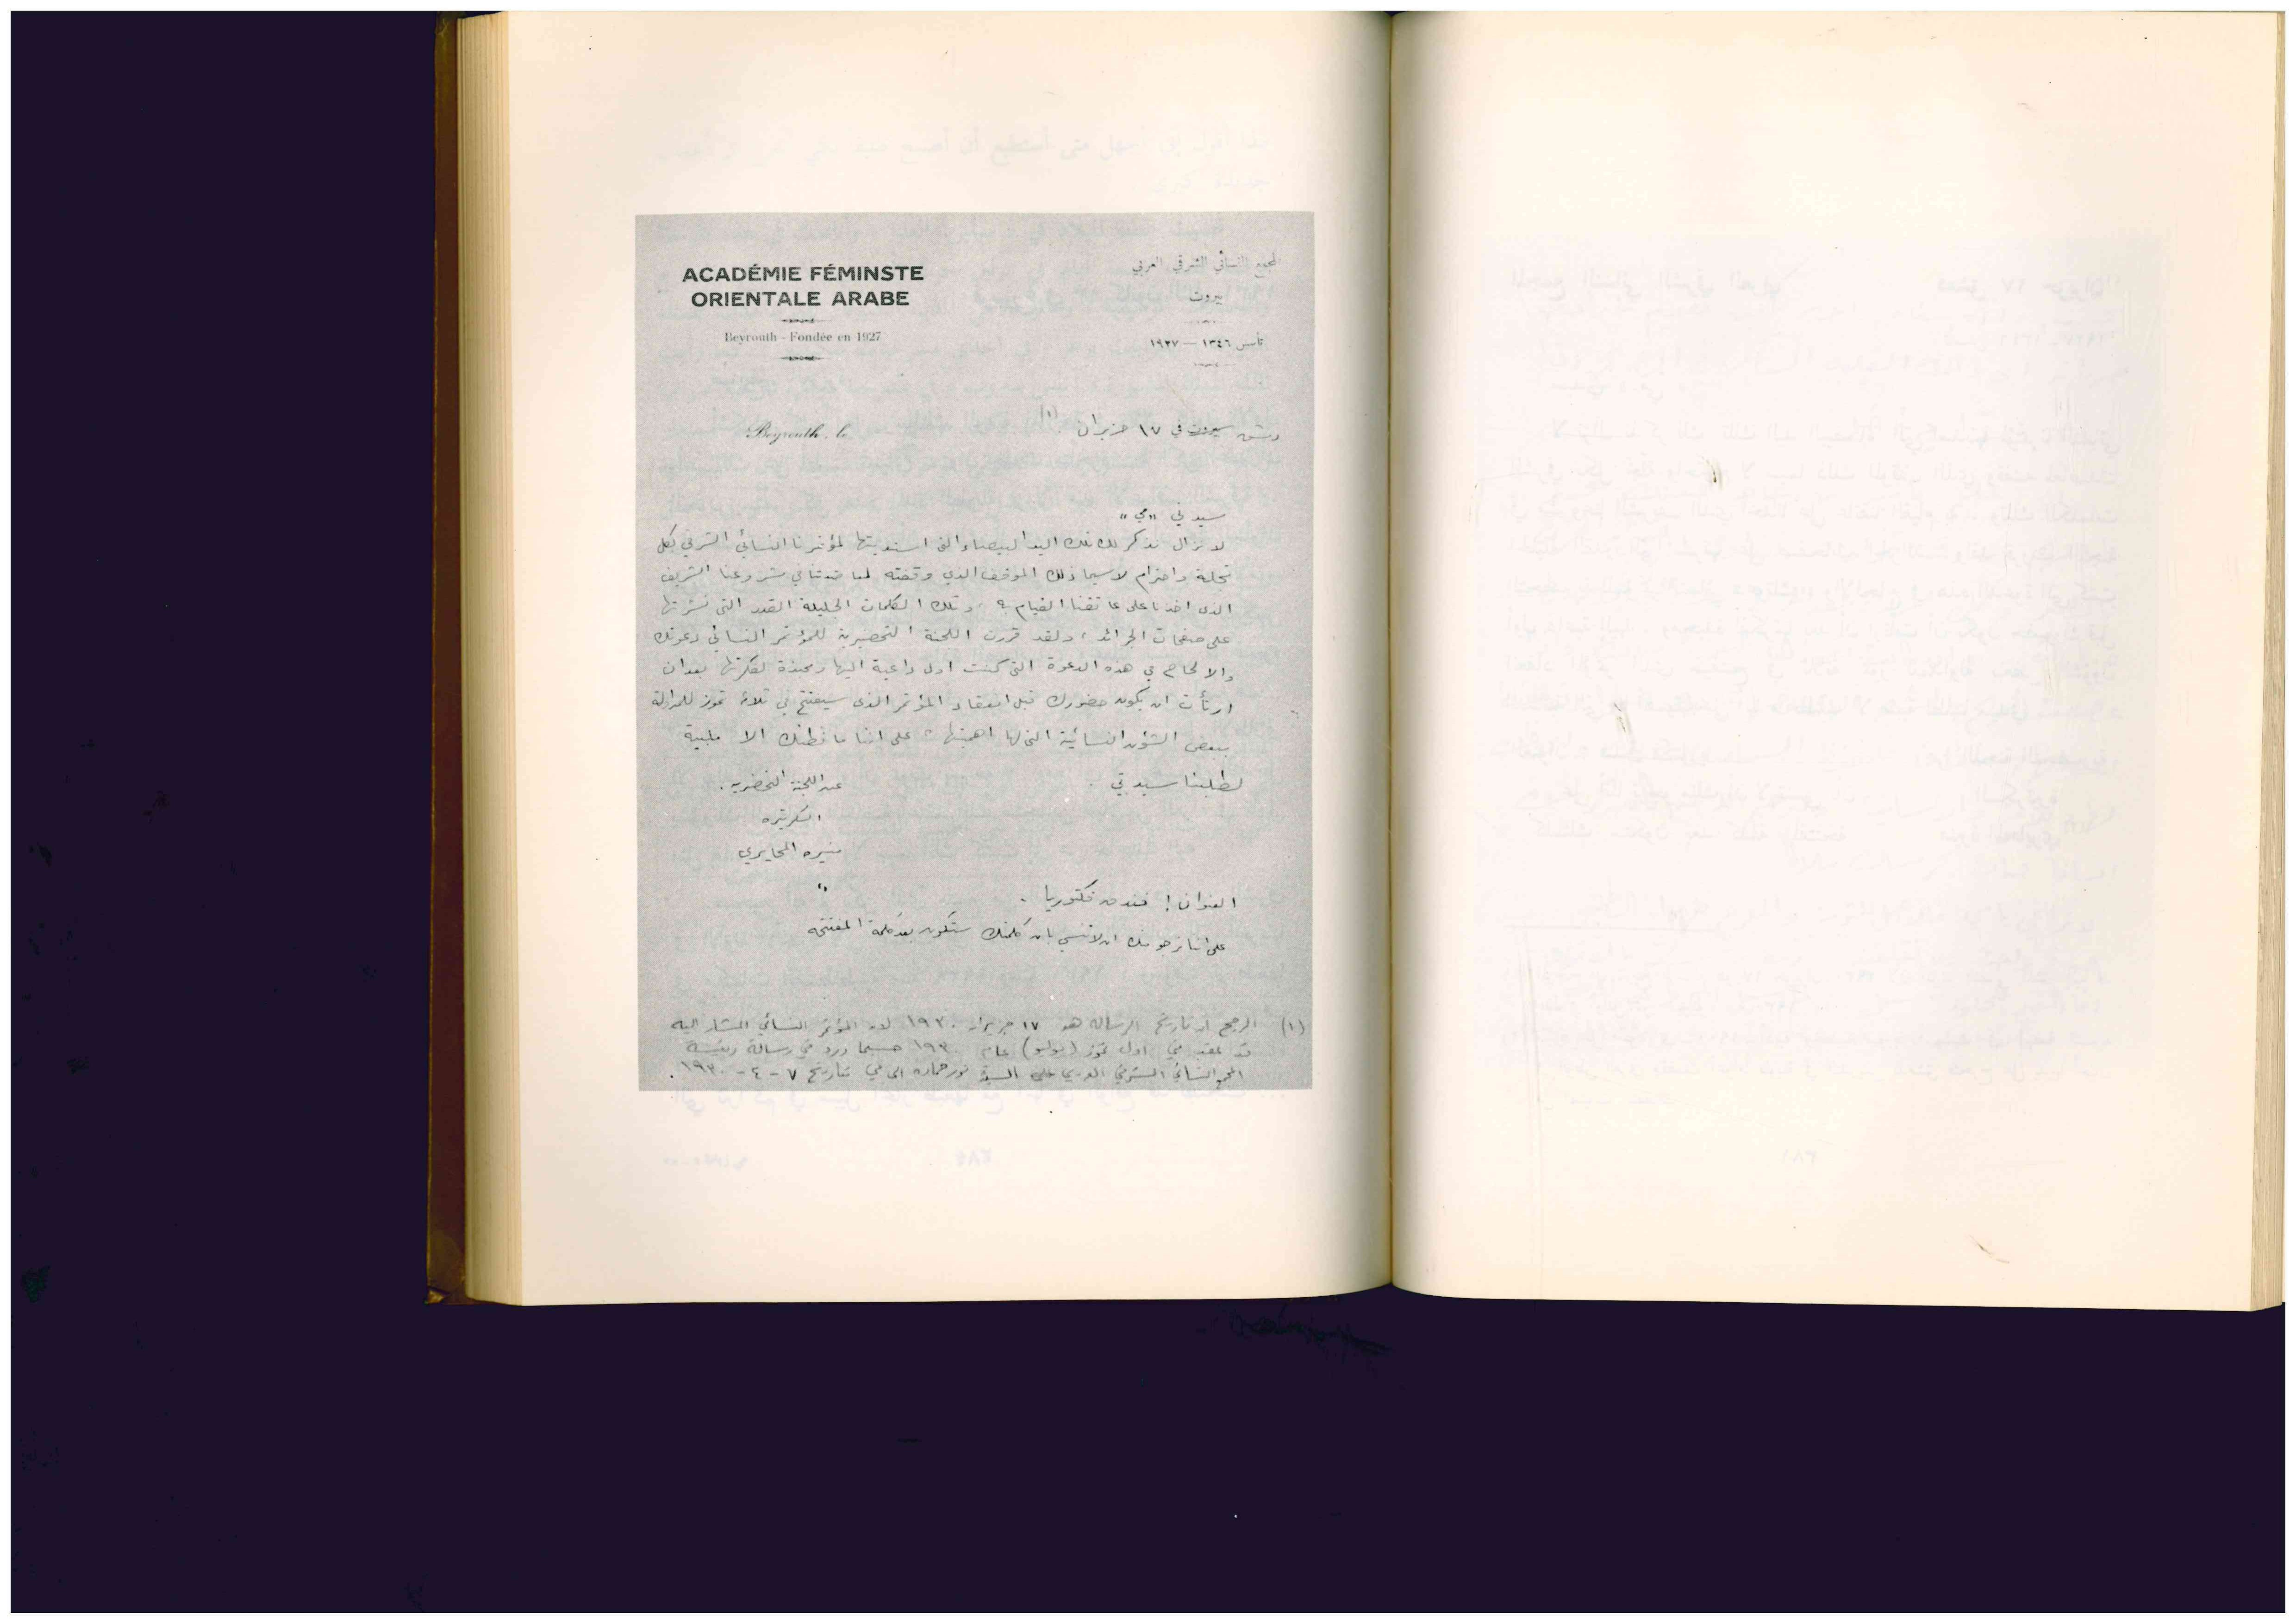 ACADÉMIE FÉMINSTE
ORIENTALE ARABE
Beyrouth - Fondée en 1927
لمجمع النسائي الشرقي العربي
بيروت
تأسس ١٣٤٦ — ١٩٢٧
Beyrouth, le
دمشق بيروت في ١٧ حزيران (١)
سيدتي «مي»
لا نزال نذكر لك تلك اليد البيضاء التي اسديتها لمؤتمرنا النسائي الشرقي بكل
تجلة واحترام لاسيما ذلك الموقف الذي وقفته لمعاضدتنا في مشروعنا الشريف
الذي اخذنا على عاتقنا القيام به، وتلك الكلمات الجليلة القدر التي نشرتها
على صفحات الجرائد، ولقد قررت اللجنة التحضيرية للمؤتمر النسائي دعوتك
والالحاح في هذه الدعوة التي كنت اول داعية اليها ومحبذة لفكرتها بعد ان
ارتأت ان يكون حضورك قبل انعقاد المؤتمر الذي سيفتتح في ثلاثة تموز للمداولة
ببعض الشؤون النسائية التي لها اهميتها، على اننا ما نظنك الا ملبية
لطلبنا سيدتي.
عن اللجنة التحضيرية.
السكرتيره
منيره المحايري
العنوان: فندق فكتوريا.
على اننا نرجو منك ان لا تنسي بان كلمتك ستكون بعد كلمة المفتتحه
(١) الرجح ان تاريخ الرساله هو ١٧ حزيران ١٩٣٠ لان المؤتمر النسائي المشار اليه
قد عقد في اول تموز (يوليو) عام ١٩٣٠ حسبما ورد في رسالة رئيسة
المجمع النسائي الشرقي العربي على السيدة نور حماده الى مي بتاريخ ٧ - ٤ - ١٩٣٠.